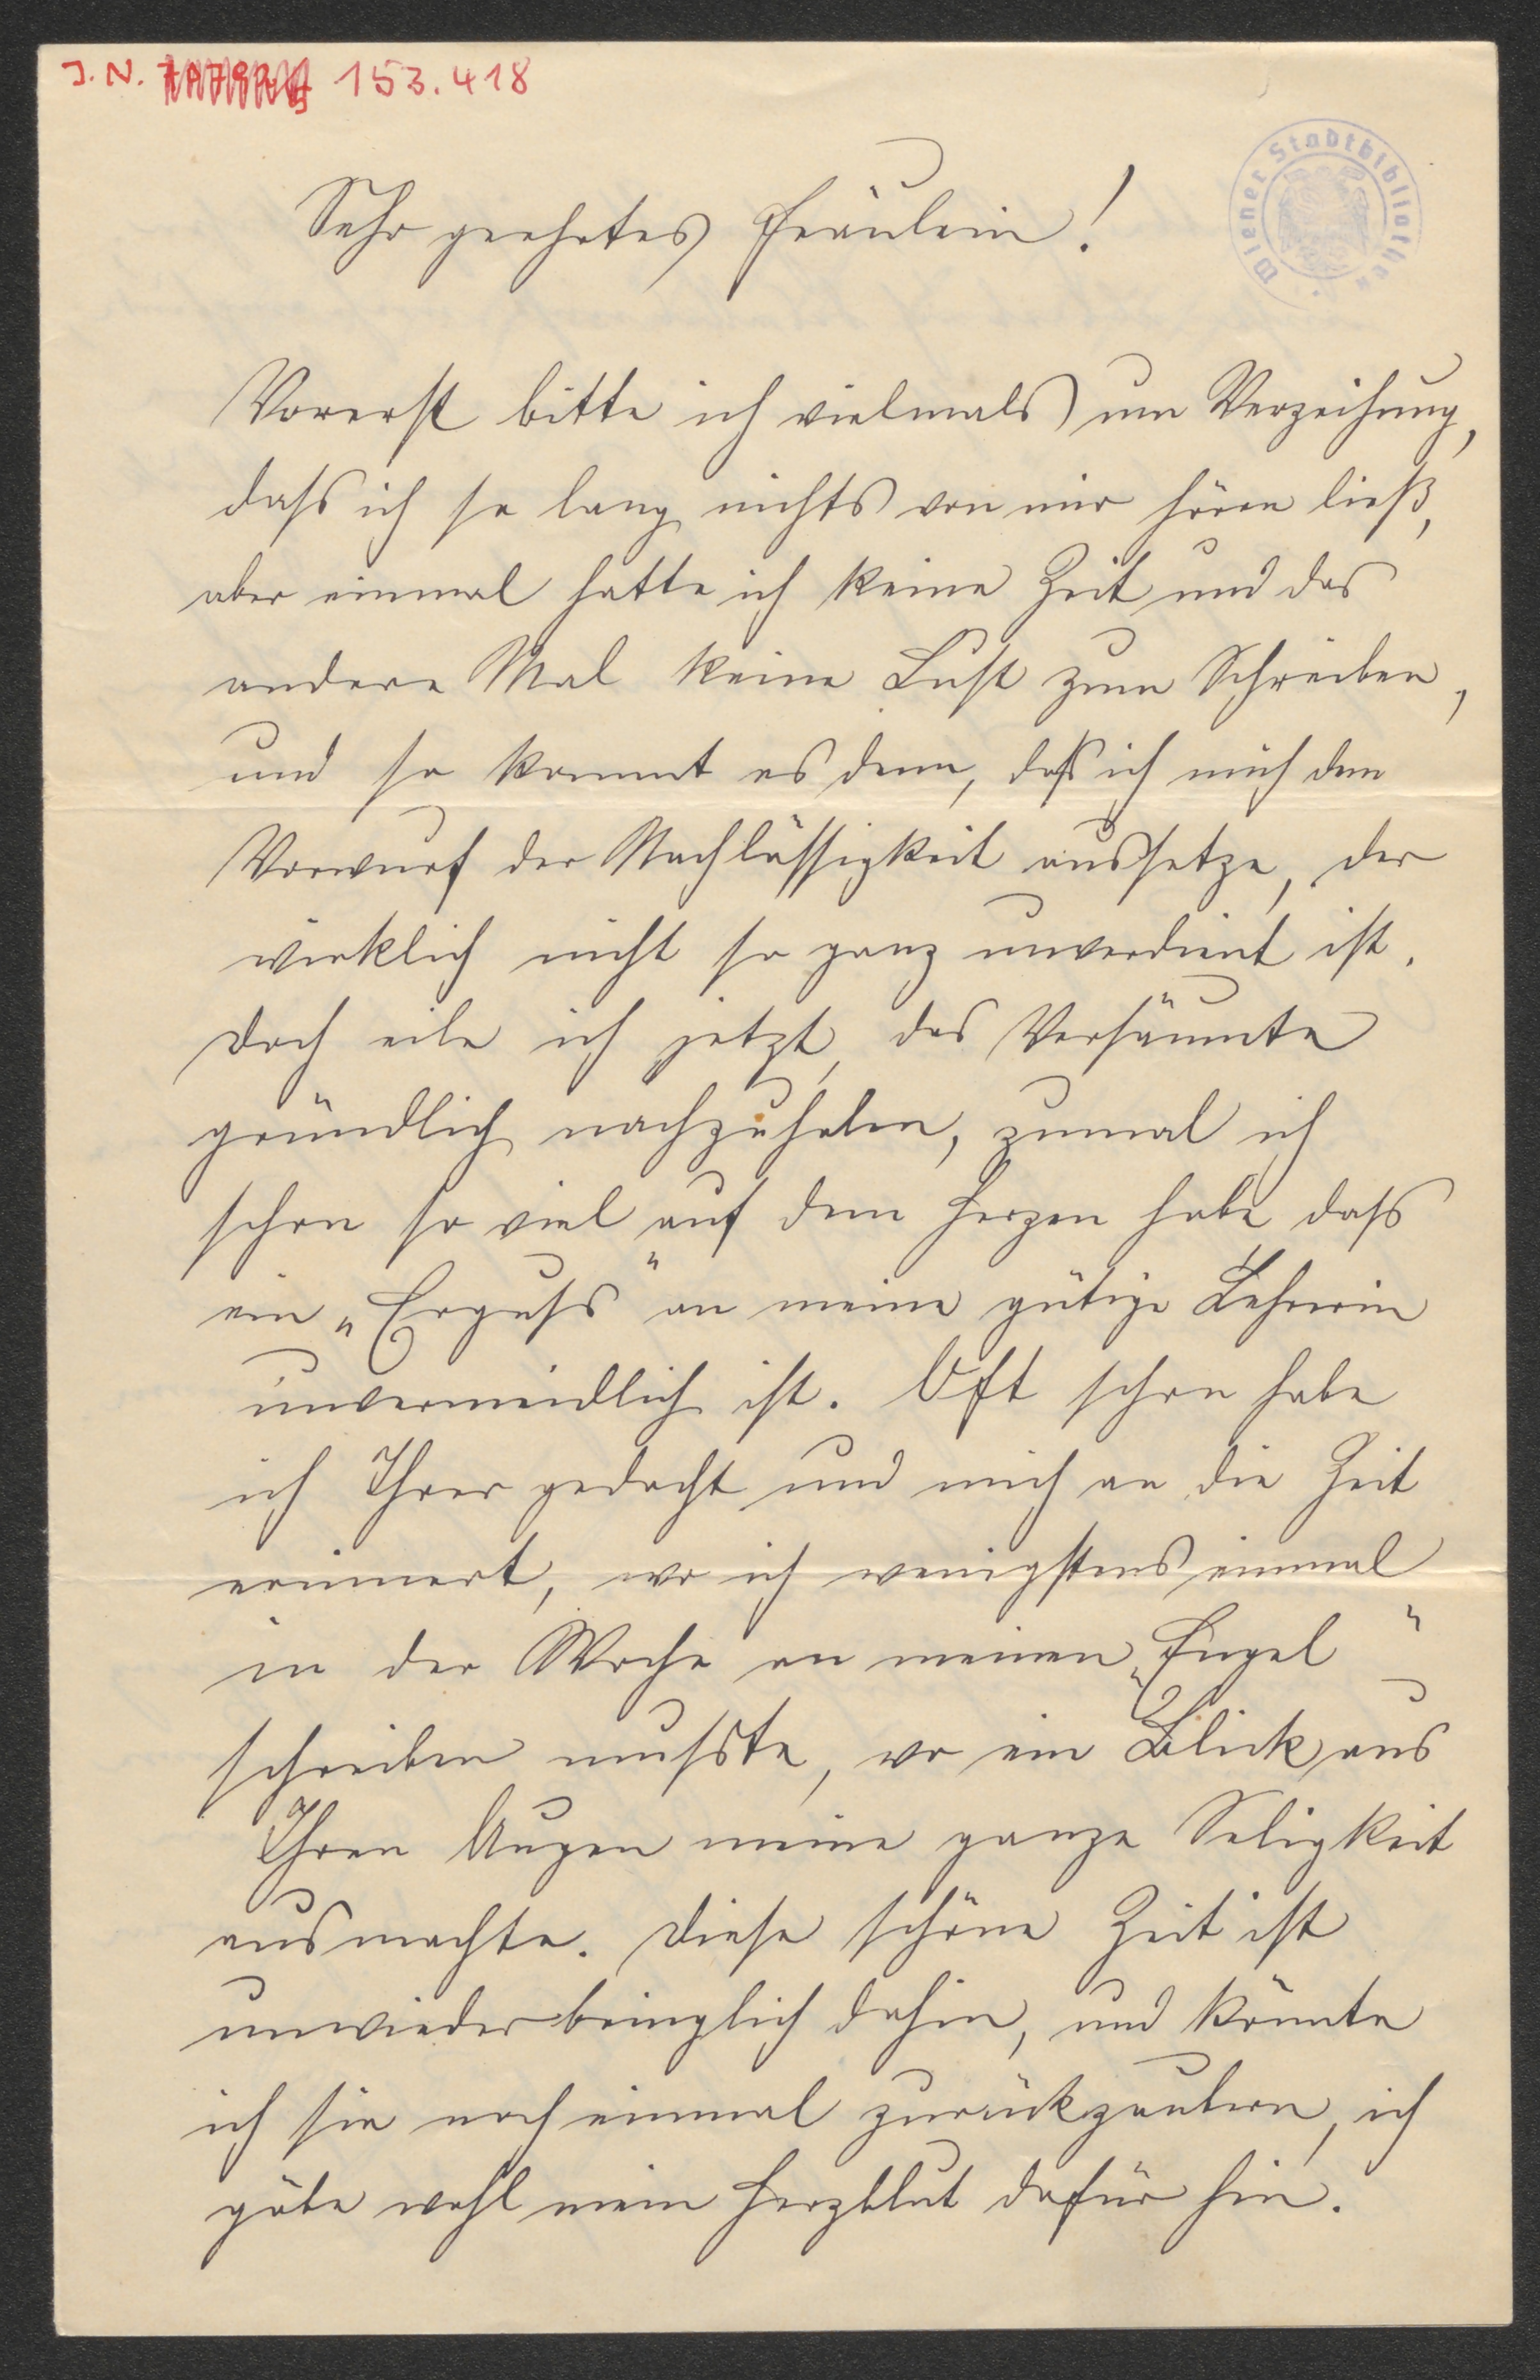 J. N. 153.418
Wiener Stadtbibliothek
Sehr geehrtes Fräulein!
Vorerst bitte ich vielmals um Verzeihung,
dass ich so lang nichts von mir hören ließ,
aber einmal hatte ich keine Zeit und das
andere Mal keine Lust zum Schreiben,
und so kommt es denn, dass ich mich dem
Vorwurf der Nachlässigkeit aussetze, der
wirklich nicht so ganz unverdient ist.
Doch eile ich jetzt, das Versäumte
gründlich nachzuholen, zumal ich
schon so viel auf dem Herzen habe dass
ein „Erguss“ an meine gütige Lehrerin
unvermeidlich ist. Oft schon habe
ich Ihrer gedacht und mich an die Zeit
erinnert, wo ich wenigstens einmal
in der Woche an meinen „Engel“
schreiben musste, wo ein Blick aus
Ihren Augen meine ganze Seligkeit
ausmachte. Diese schöne Zeit ist
unwiederbringlich dahin, und könnte
ich sie noch einmal zurückzaubern, ich
gäbe wohl mein Herzblut dafür hin.